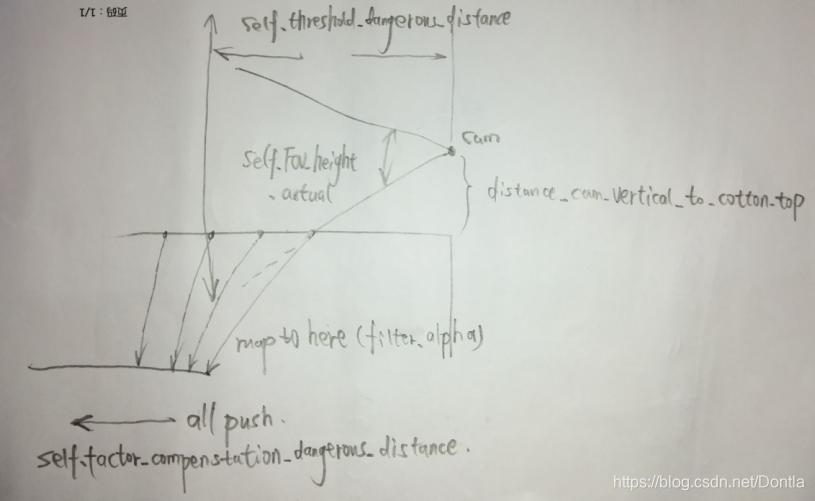 页码：1/1
self.threshold_dangerous_distance
cam
self.Fov_height
.actual
distance_cam_vertical_to_cotton_top
map to here (filter_alpha)
all push.
self.factor_compenstation_dangerous_distance.
https://blog.csdn.net/Dontla